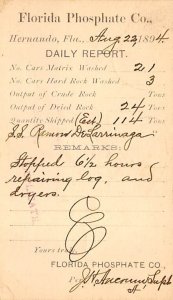 Florida Phosphate Co.,
Hernando, Fla., Aug 22 1894
DAILY REPORT.
No. Cars Matrix Washed 21
No. Cars Hard Rock Washed 3
Output of Crude Rock, Tons
Output of Dried Rock 24 Tons
Quantity Shipped (Est) 114 Tons
S.S. Ramon De Larrinaga
REMARKS:
Stopped 6½ hours
repairing log, and
dryers.
Yours truly,
FLORIDA PHOSPHATE CO.,
Per Supt